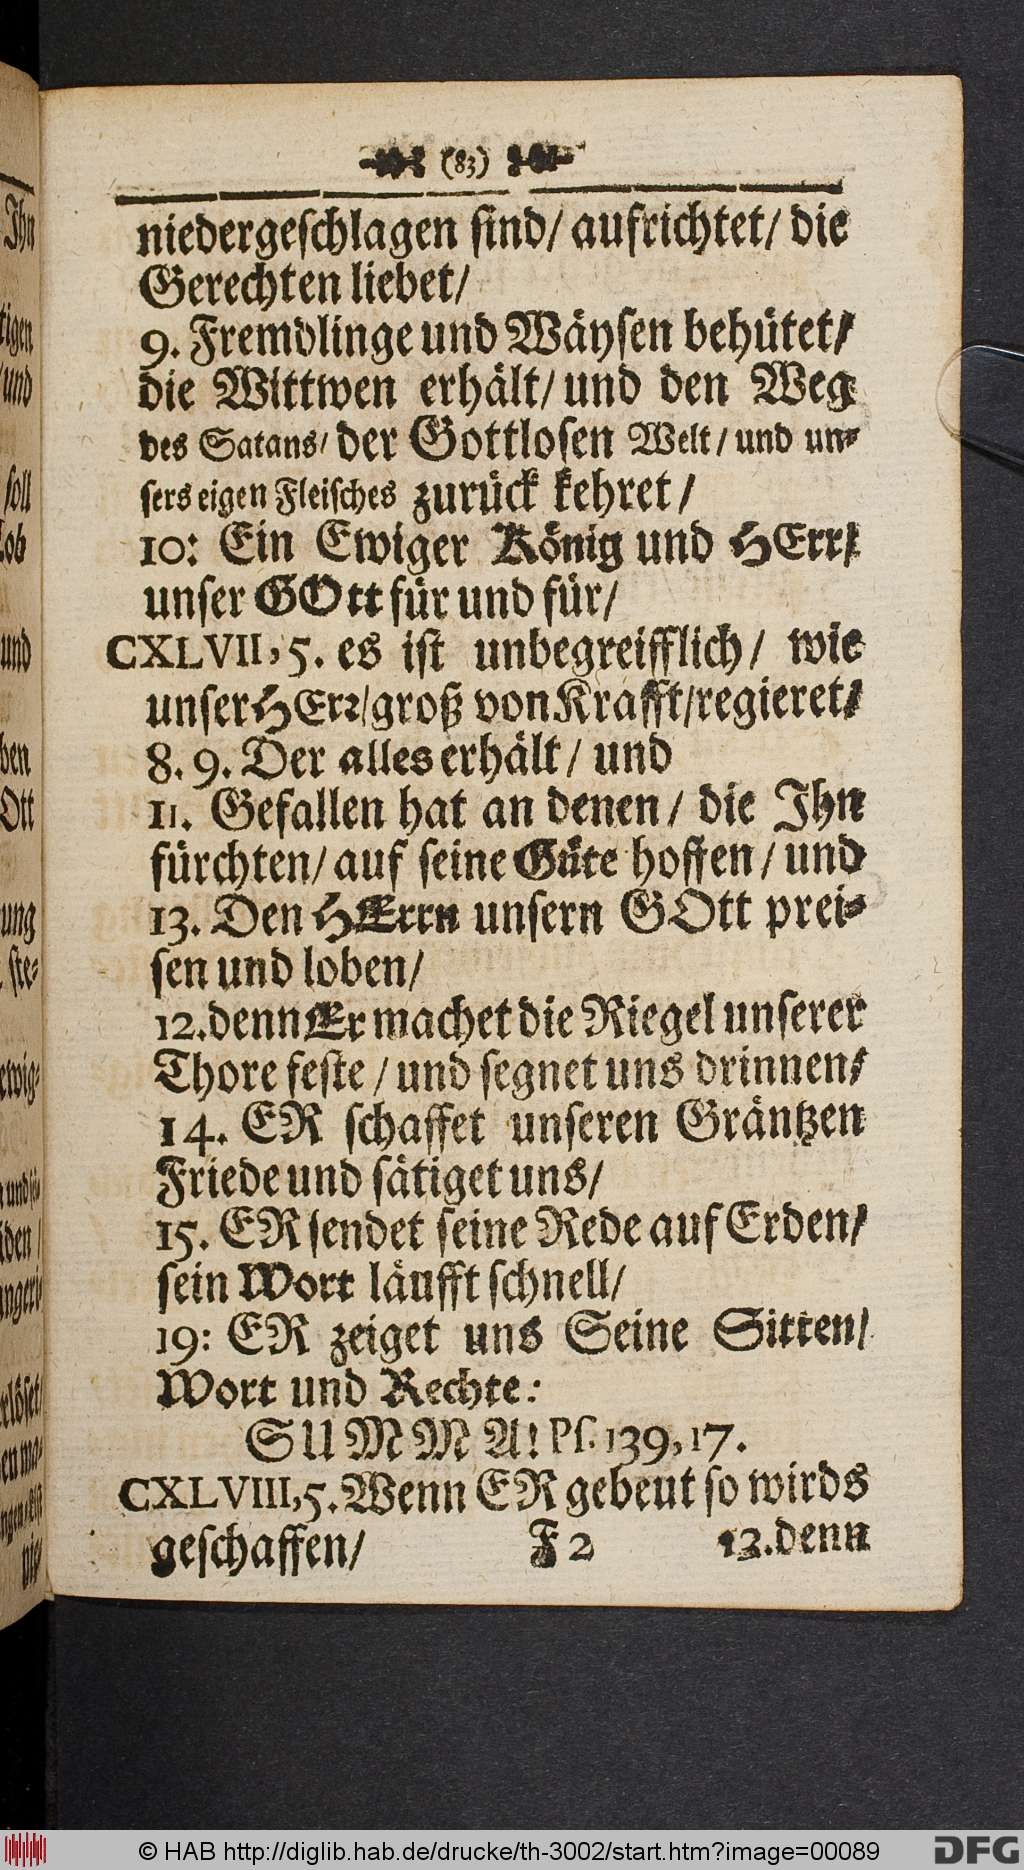 (83)
niedergeſchlagen ſind/ aufrichtet/ die
Gerechten liebet/
9. Fremdlinge und Wäyſen behütet/
die Wittwen erhält/ und den Weg
des Satans/ der Gottloſen Welt/ und un-
ſers eigen Fleiſches zurück kehret/
10: Ein Ewiger König und HErr/
unſer GOtt für und für/
CXLVII, 5. es iſt unbegreifflich/ wie
unſer HErr/ groß von Krafft/ regieret/
8. 9. Der alles erhält/ und
11. Gefallen hat an denen/ die Ihn
fürchten/ auf ſeine Güte hoffen/ und
13. Den HErrn unſern GOtt prei-
ſen und loben/
12. denn Er machet die Riegel unſerer
Thore feſte/ und ſegnet uns drinnen/
14. ER ſchaffet unſeren Gräntzen
Friede und ſätiget uns/
15. ER ſendet ſeine Rede auf Erden/
ſein Wort läufft ſchnell/
19: ER zeiget uns Seine Sitten/
Wort und Rechte:
SUMMA! Pſ. 139, 17.
CXLVIII, 5. Wenn ER gebeut ſo wirds
geſchaffen/
F 2 13. denn
Ihn
tigen
/und
ſoll
Lob
und
ben
Ott
ung
ſte-
ewig-
den/
löſet/
© HAB http://diglib.hab.de/drucke/th-3002/start.htm?image=00089
DFG